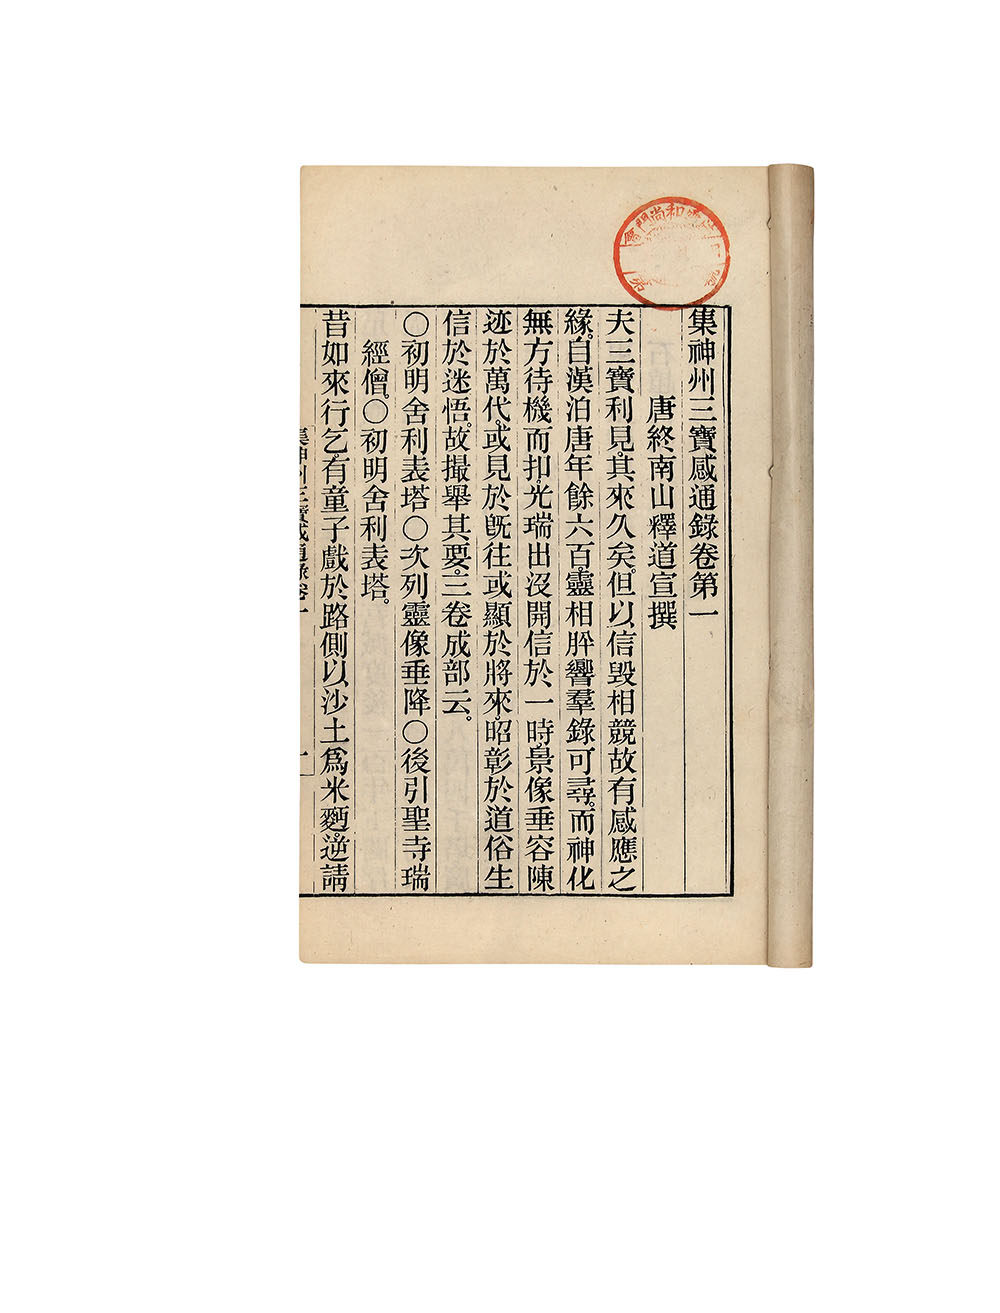 集神州三寶感通錄卷第一
唐終南山釋道宣撰
夫三寶利見。其來久矣。但以信毀相競故有感應之
緣。自漢洎唐年餘六百。靈相肸響羣錄可尋。而神化
無方待機而扣。光瑞出沒開信於一時。景像垂容陳
迹於萬代。或見於旣往或顯於將來。昭彰於道俗生
信於迷悟。故撮舉其要。三卷成部云。
〇初明舍利表塔〇次列靈像垂降〇後引聖寺瑞
經僧。〇初明舍利表塔。
昔如來行乞。有童子戲於路側以沙土爲米麪。逆請
集神州三寶感通錄卷一
一
門尚和